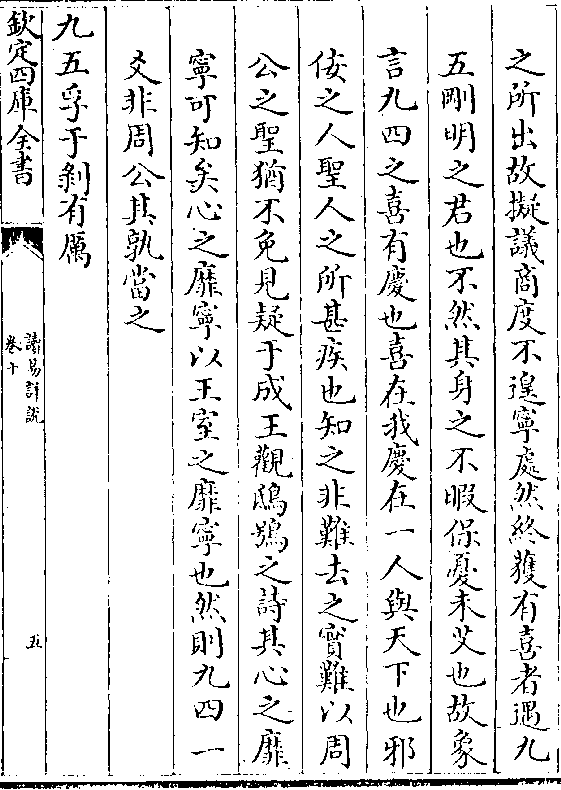 之所出故擬議商度不遑寧處然終獲有喜者遇九
五剛明之君也不然其身之不暇保憂未艾也故象
言九四之喜有慶也喜在我慶在一人與天下也邪
佞之人聖人之所甚疾也知之非難去之實難以周
公之聖猶不免見疑于成王觀鴟鴞之詩其心之靡
寧可知矣心之靡寧以王室之靡寧也然則九四一
爻非周公其孰當之
九五孚于剝有厲
欽定四庫全書
讀易詳說
卷十
五